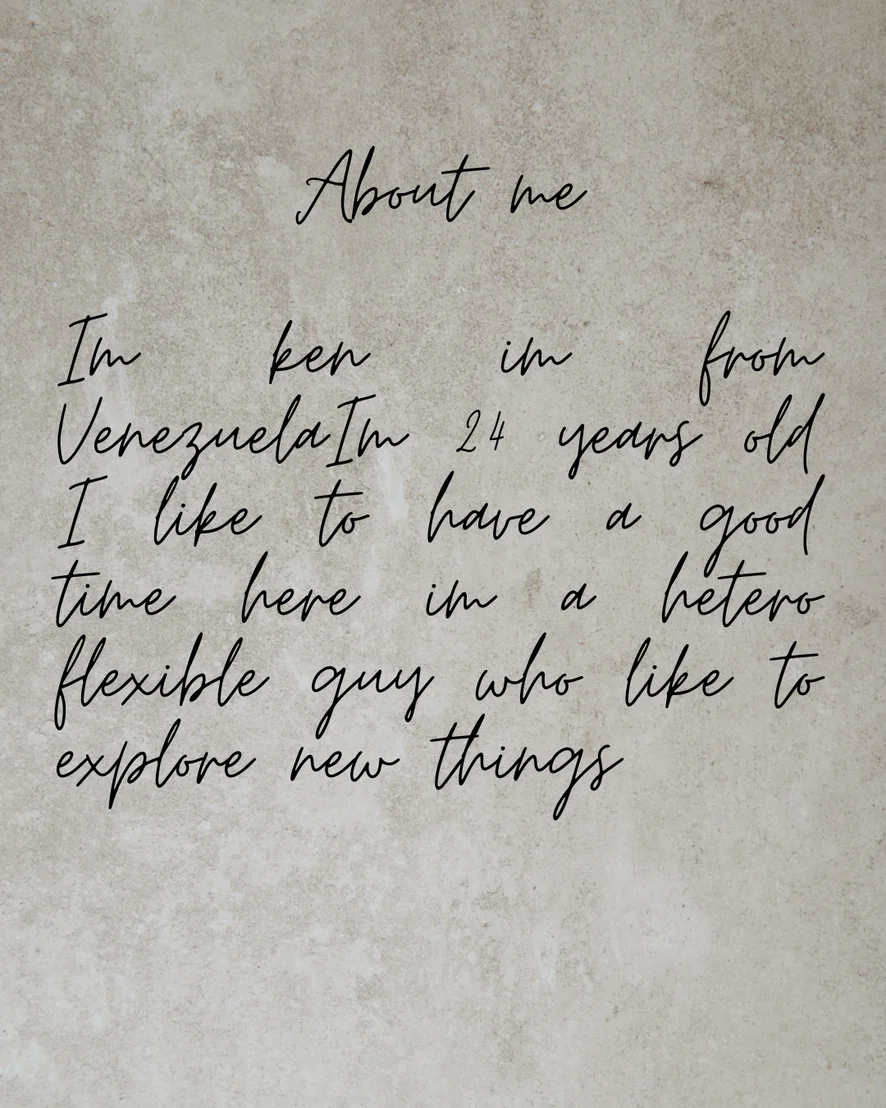 About me
Im ken im from
VenezuelaIm 24 years old
I like to have a good
time here im a hetero
flexible guy who like to
explore new things